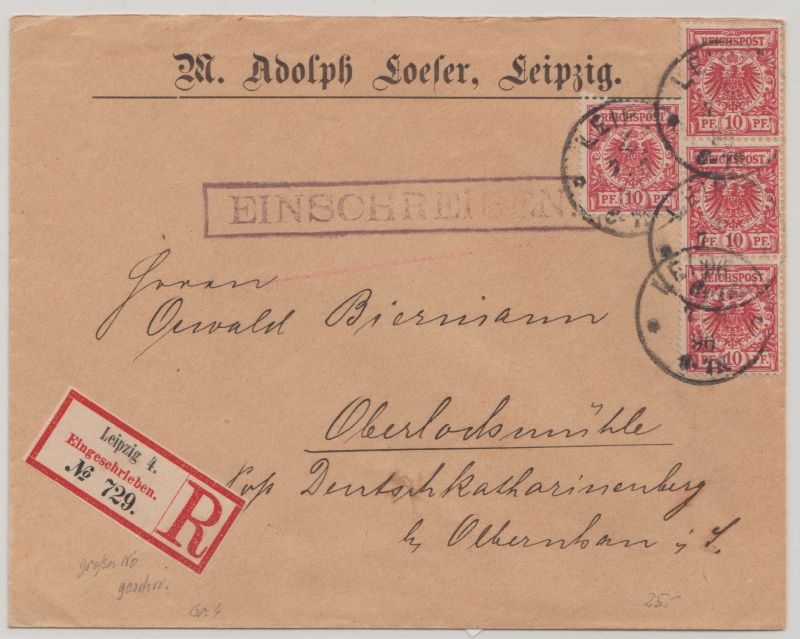 M. Adolph Loeser, Leipzig.
REICHSPOST
PF. 10 PF.
REICHSPOST
PF. 10 PF.
REICHSPOST
PF. 10 PF.
REICHSPOST
PF. 10 PF.
EINSCHREIBEN
Herrn
Oswald Biermann
Oberlochmühle
Post Deutschkatharinenberg
b/ Olbernhau i/S.
Leipzig 4.
Eingeschrieben.
№ 729.
R
großer No
geschr.
25.-